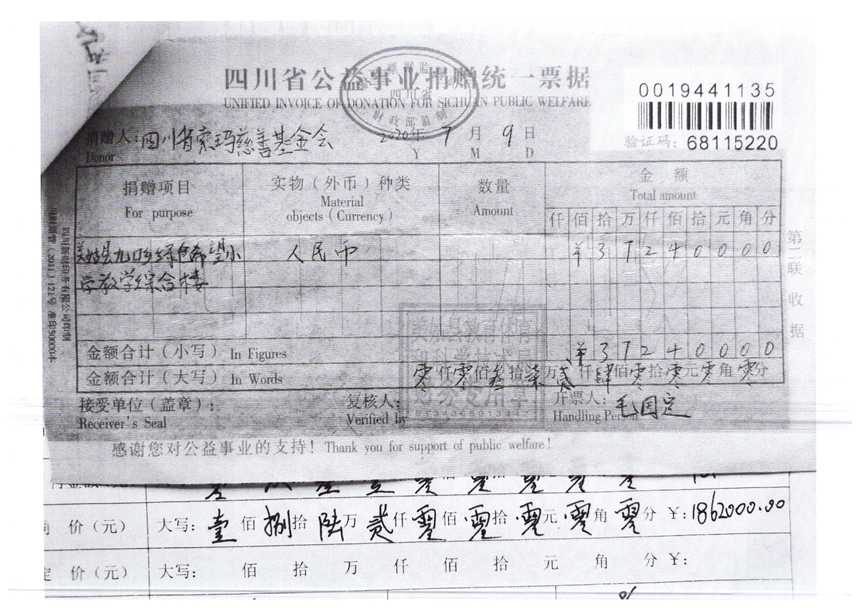 四川省公益事业捐赠统一票据
UNIFIED INVOICE OF DONATION FOR SICHUAN PUBLIC WELFARE
0019441135
验证码: 68115220
捐赠人: 四川省索玛慈善基金会 2020年 7月 9日
Donor Y M D
捐赠项目 实物（外币）种类 数量 金额
For purpose Material objects（Currency） Amount Total amount
仟 佰 拾 万 仟 佰 拾 元 角 分
美姑县九口乡绿色希望小 人民币 ¥ 3 7 2 4 0 0 0 0
学教学综合楼
金额合计（小写） In Figures ¥ 3 7 2 4 0 0 0 0
金额合计（大写） In Words 零仟零佰叁拾柒万贰仟肆佰零拾零元零角零分
接受单位（盖章）: 复核人: 开票人: 毛国定
Receiver's Seal Verified by Handling Person
感谢您对公益事业的支持! Thank you for support of public welfare!
第二联 收据
价（元） 大写: 壹佰捌拾陆万贰仟零佰零拾零元零角零分 ¥:1862000.00
定 价（元） 大写: 佰 拾 万 仟 佰 拾 元 角 分 ¥: